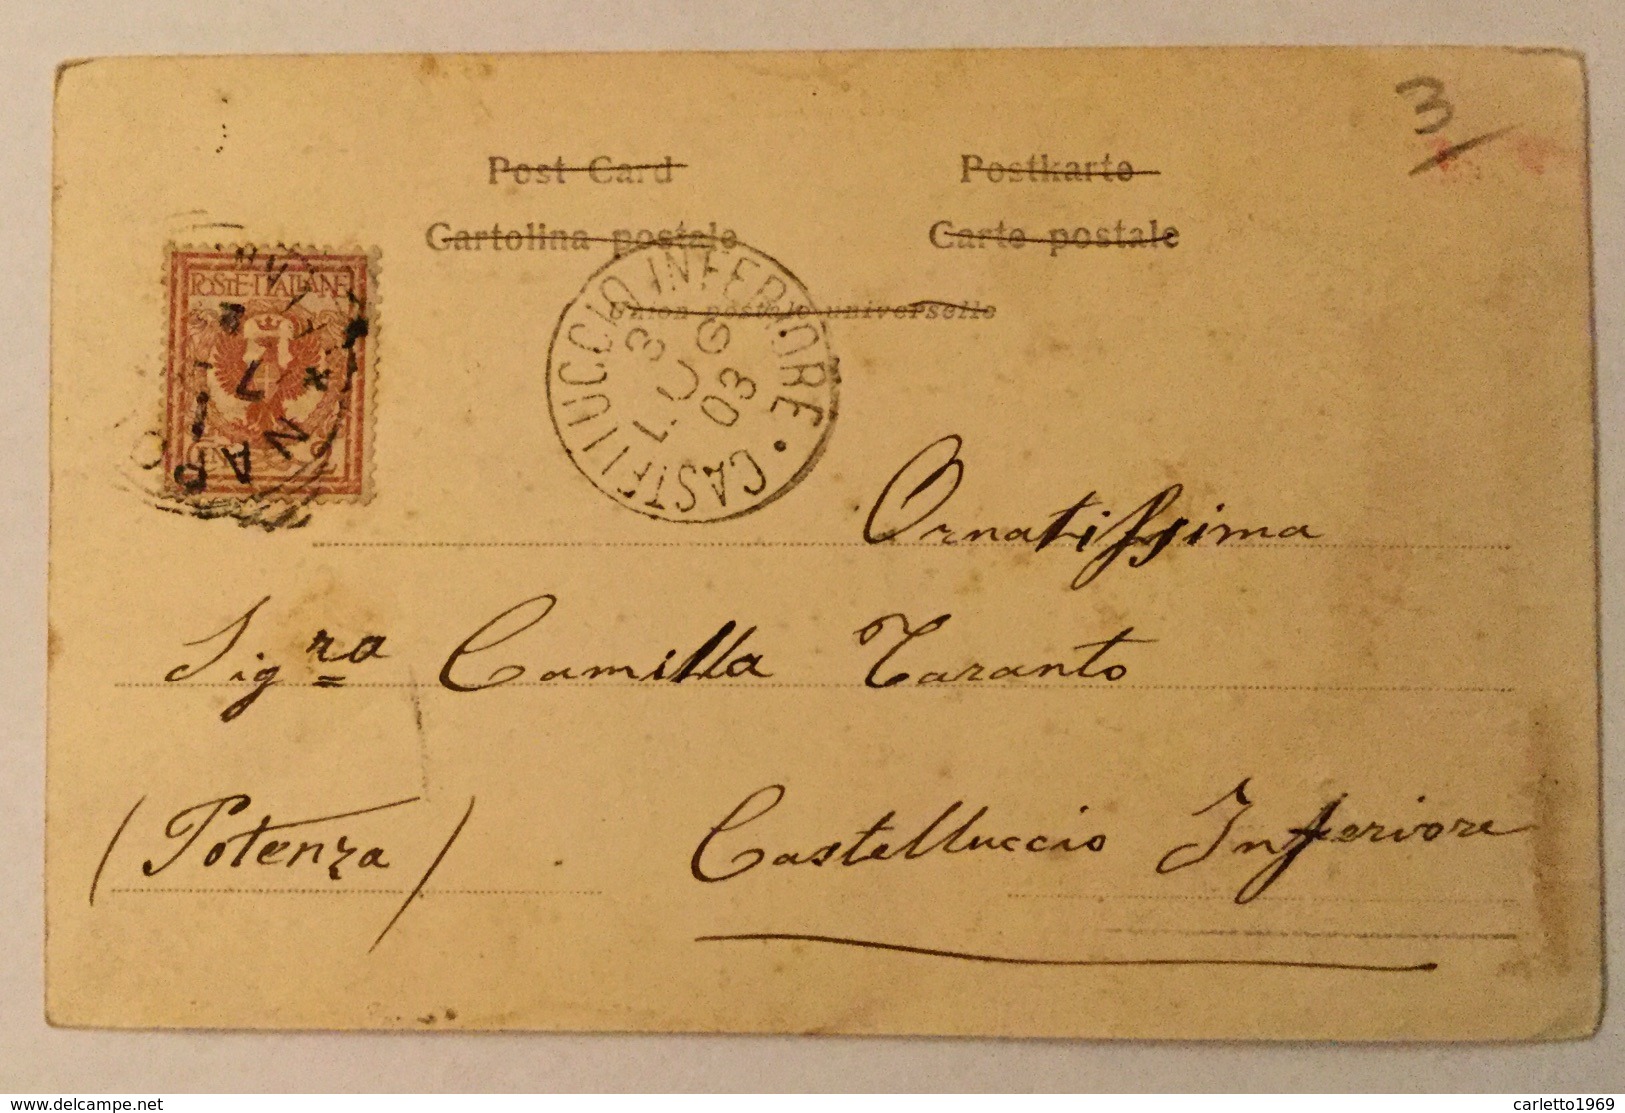 3/
Post Card Postkarte
Cartolina postale Carte postale
Union postale universelle
POSTE ITALIANE
CASTELLUCCIO INFERIORE
3 LUG 03
Ornatissima
Sig.ra Camilla Taranto
(Potenza) Castelluccio Inferiore
www.delcampe.net carletto1969